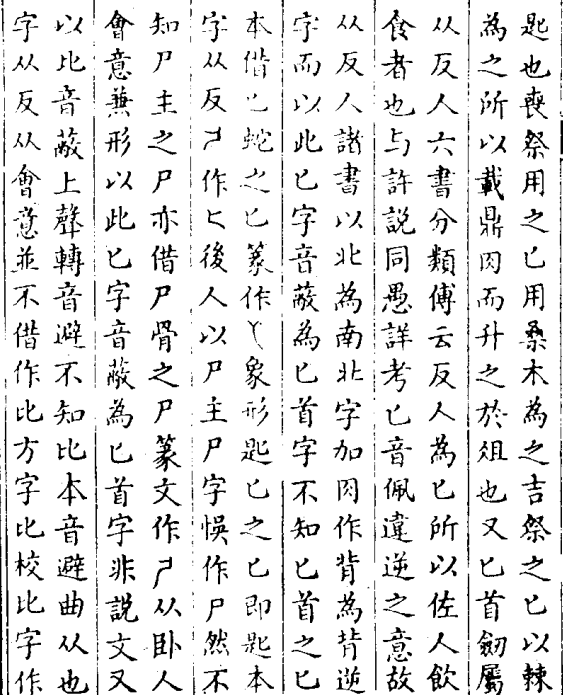 匙也喪祭用之匕用桑木為之吉祭之匕以棘
為之所以載鼎肉而升之於俎也又匕首劒屬
从反人六書分類傅云反人為匕所以佐人飲
食者也与許説同愚詳考匕音佩違逆之意故
从反人諸書以北為南北字加肉作背為背逆
字而以此匕字音蔽為匕首字不知匕首之匕
本借匕蛇之匕篆作象形匙匕之匕即匙本
字从反作匕後人以尸主尸字悞作尸然不
知尸主之尸亦借尸骨之尸篆文作从卧人
會意兼形以此匕字音蔽為匕首字非説文又
以比音蔽上聲轉音避不知比本音避曲从也
字从反从會意並不借作比方字比校比字作